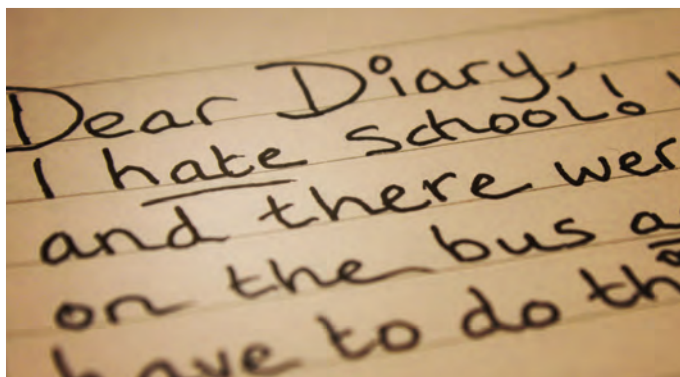 Dear Diary,
I hate school!
and there wer
on the bus a
have to do th